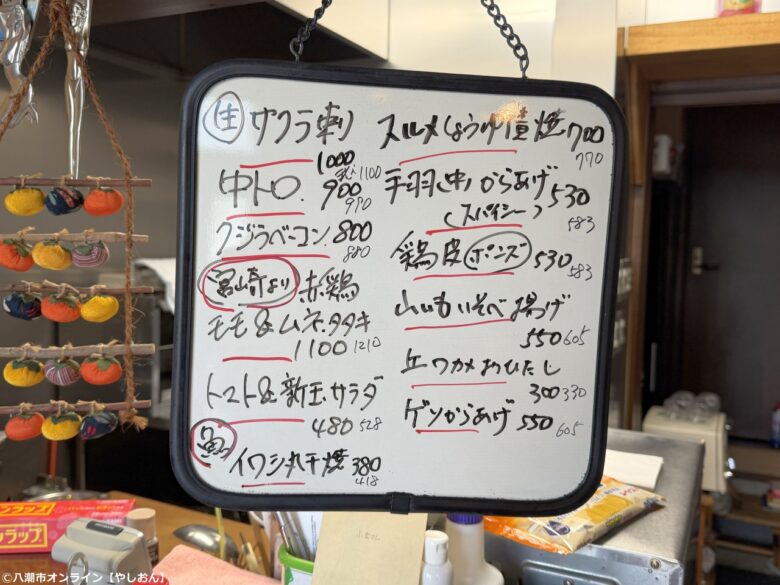 生 サクラ刺
1000
税込1100
中トロ 900
990
クジラベーコン 800
880
宮崎より 赤鶏
モモ&ムネ.タタキ
1100 1210
トマト&新玉.サラダ
480 528
イワシ丸干焼 380
418
スルメしょうゆ 焼 700
770
手羽中からあげ 530
(スパイシー) 583
鶏皮 ポンズ 530
583
山いもいそべ揚げ
550 605
生ワカメおひたし
300 330
ゲソからあげ 550
605
ラップ
©八潮市オンライン【やしおん】